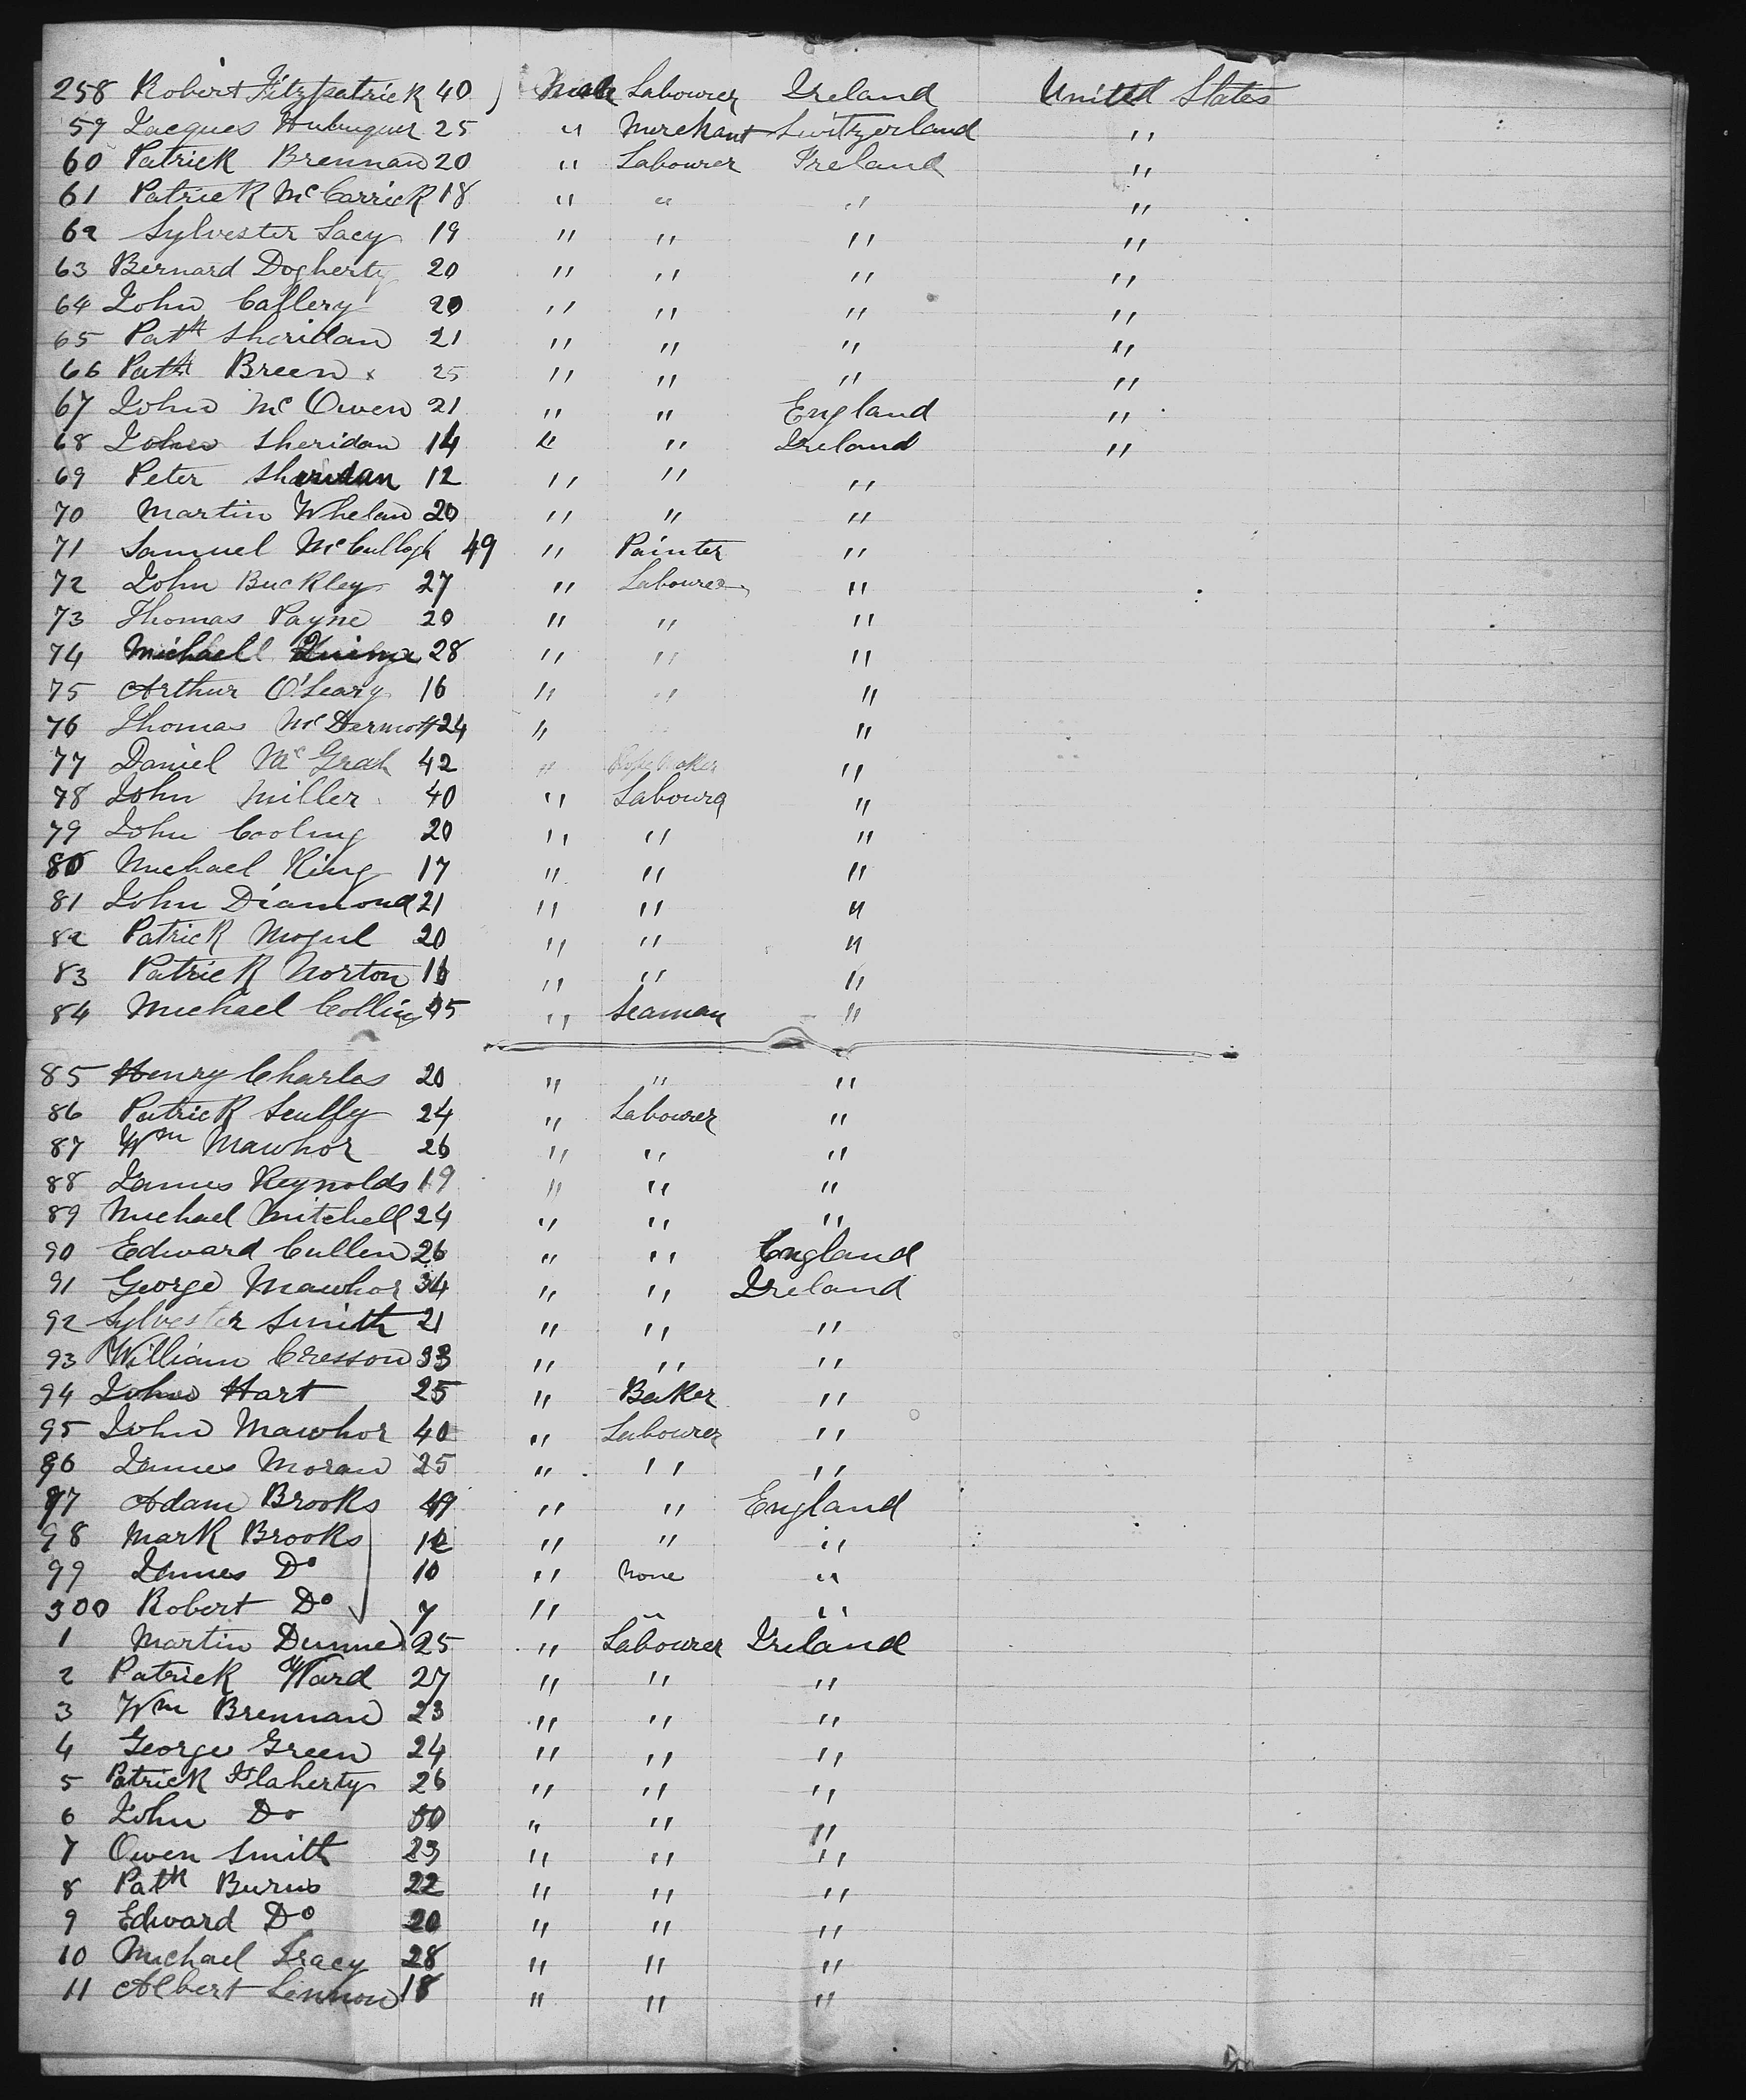 258 Robert Fitzpatrick 40 Male Labourer Ireland United States
59 Jacques 25 " Merchant Switzerland "
60 Patrick Brennan 20 " Labourer Ireland "
61 Patrick McCarrick 18 " " " "
62 Sylvester Lacy 19 " " " "
63 Bernard Dogherty 20 " " " "
64 John Callery 20 " " " "
65 Patk Sheridan 21 " " " "
66 Patk Breen x 25 " " " "
67 John McOwen 21 " " England "
68 John Sheridan 14 " " Ireland "
69 Peter Sheridan 12 " " "
70 Martin Whelan 20 " " "
71 Samuel McCullogh 49 " Painter "
72 John Buckley 27 " Labourer "
73 Thomas Payne 20 " " "
74 Michael 28 " " "
75 Arthur O'Leary 16 " " "
76 Thomas McDermott 24 " "
77 Daniel McGrah 42 " Rope Maker "
78 John Miller 40 " Labourer "
79 John Cooling 20 " " "
80 Michael King 17 " " "
81 John Diamond 21 " " "
82 Patrick Mogul 20 " " "
83 Patrick Norton 16 " " "
84 Michael Collins 45 " Seaman "
85 Henry Charles 20 " " "
86 Patrick Scully 24 " Labourer "
87 Wm Mawhor 26 " " "
88 James Reynolds 19 " " "
89 Michael Mitchell 24 " " "
90 Edward Cullen 26 " " England
91 George Mawhor 34 " " Ireland
92 Sylvester Smith 21 " " "
93 William Cresson 33 " " "
94 John Hart 25 " Baker "
95 John Mawhor 40 " Labourer "
96 James Moran 25 " " "
97 Adam Brooks 49 " " England
98 Mark Brooks 12 " " "
99 James Do 10 " None "
300 Robert Do 7 " " "
1 Martin Dunne 25 " Labourer Ireland
2 Patrick Ward 27 " " "
3 Wm Brennan 23 " " "
4 George Green 24 " " "
5 Patrick Flaherty 26 " " "
6 John Do 50 " " "
7 Owen Smith 23 " " "
8 Patk Burns 22 " " "
9 Edward Do 20 " " "
10 Michael Tracy 28 " " "
11 Albert Lennon 18 " " "